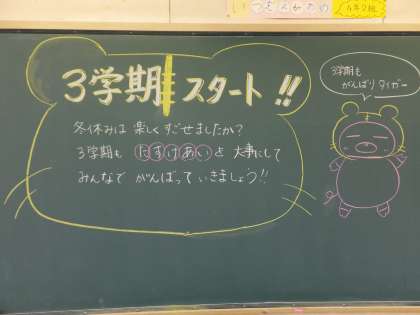 3学期スタート!!
冬休みは 楽しく すごせましたか?
3学期も たすけあいを 大事にして
みんなで がんばって いきましょう!!
3学期も
がんばり タイガー